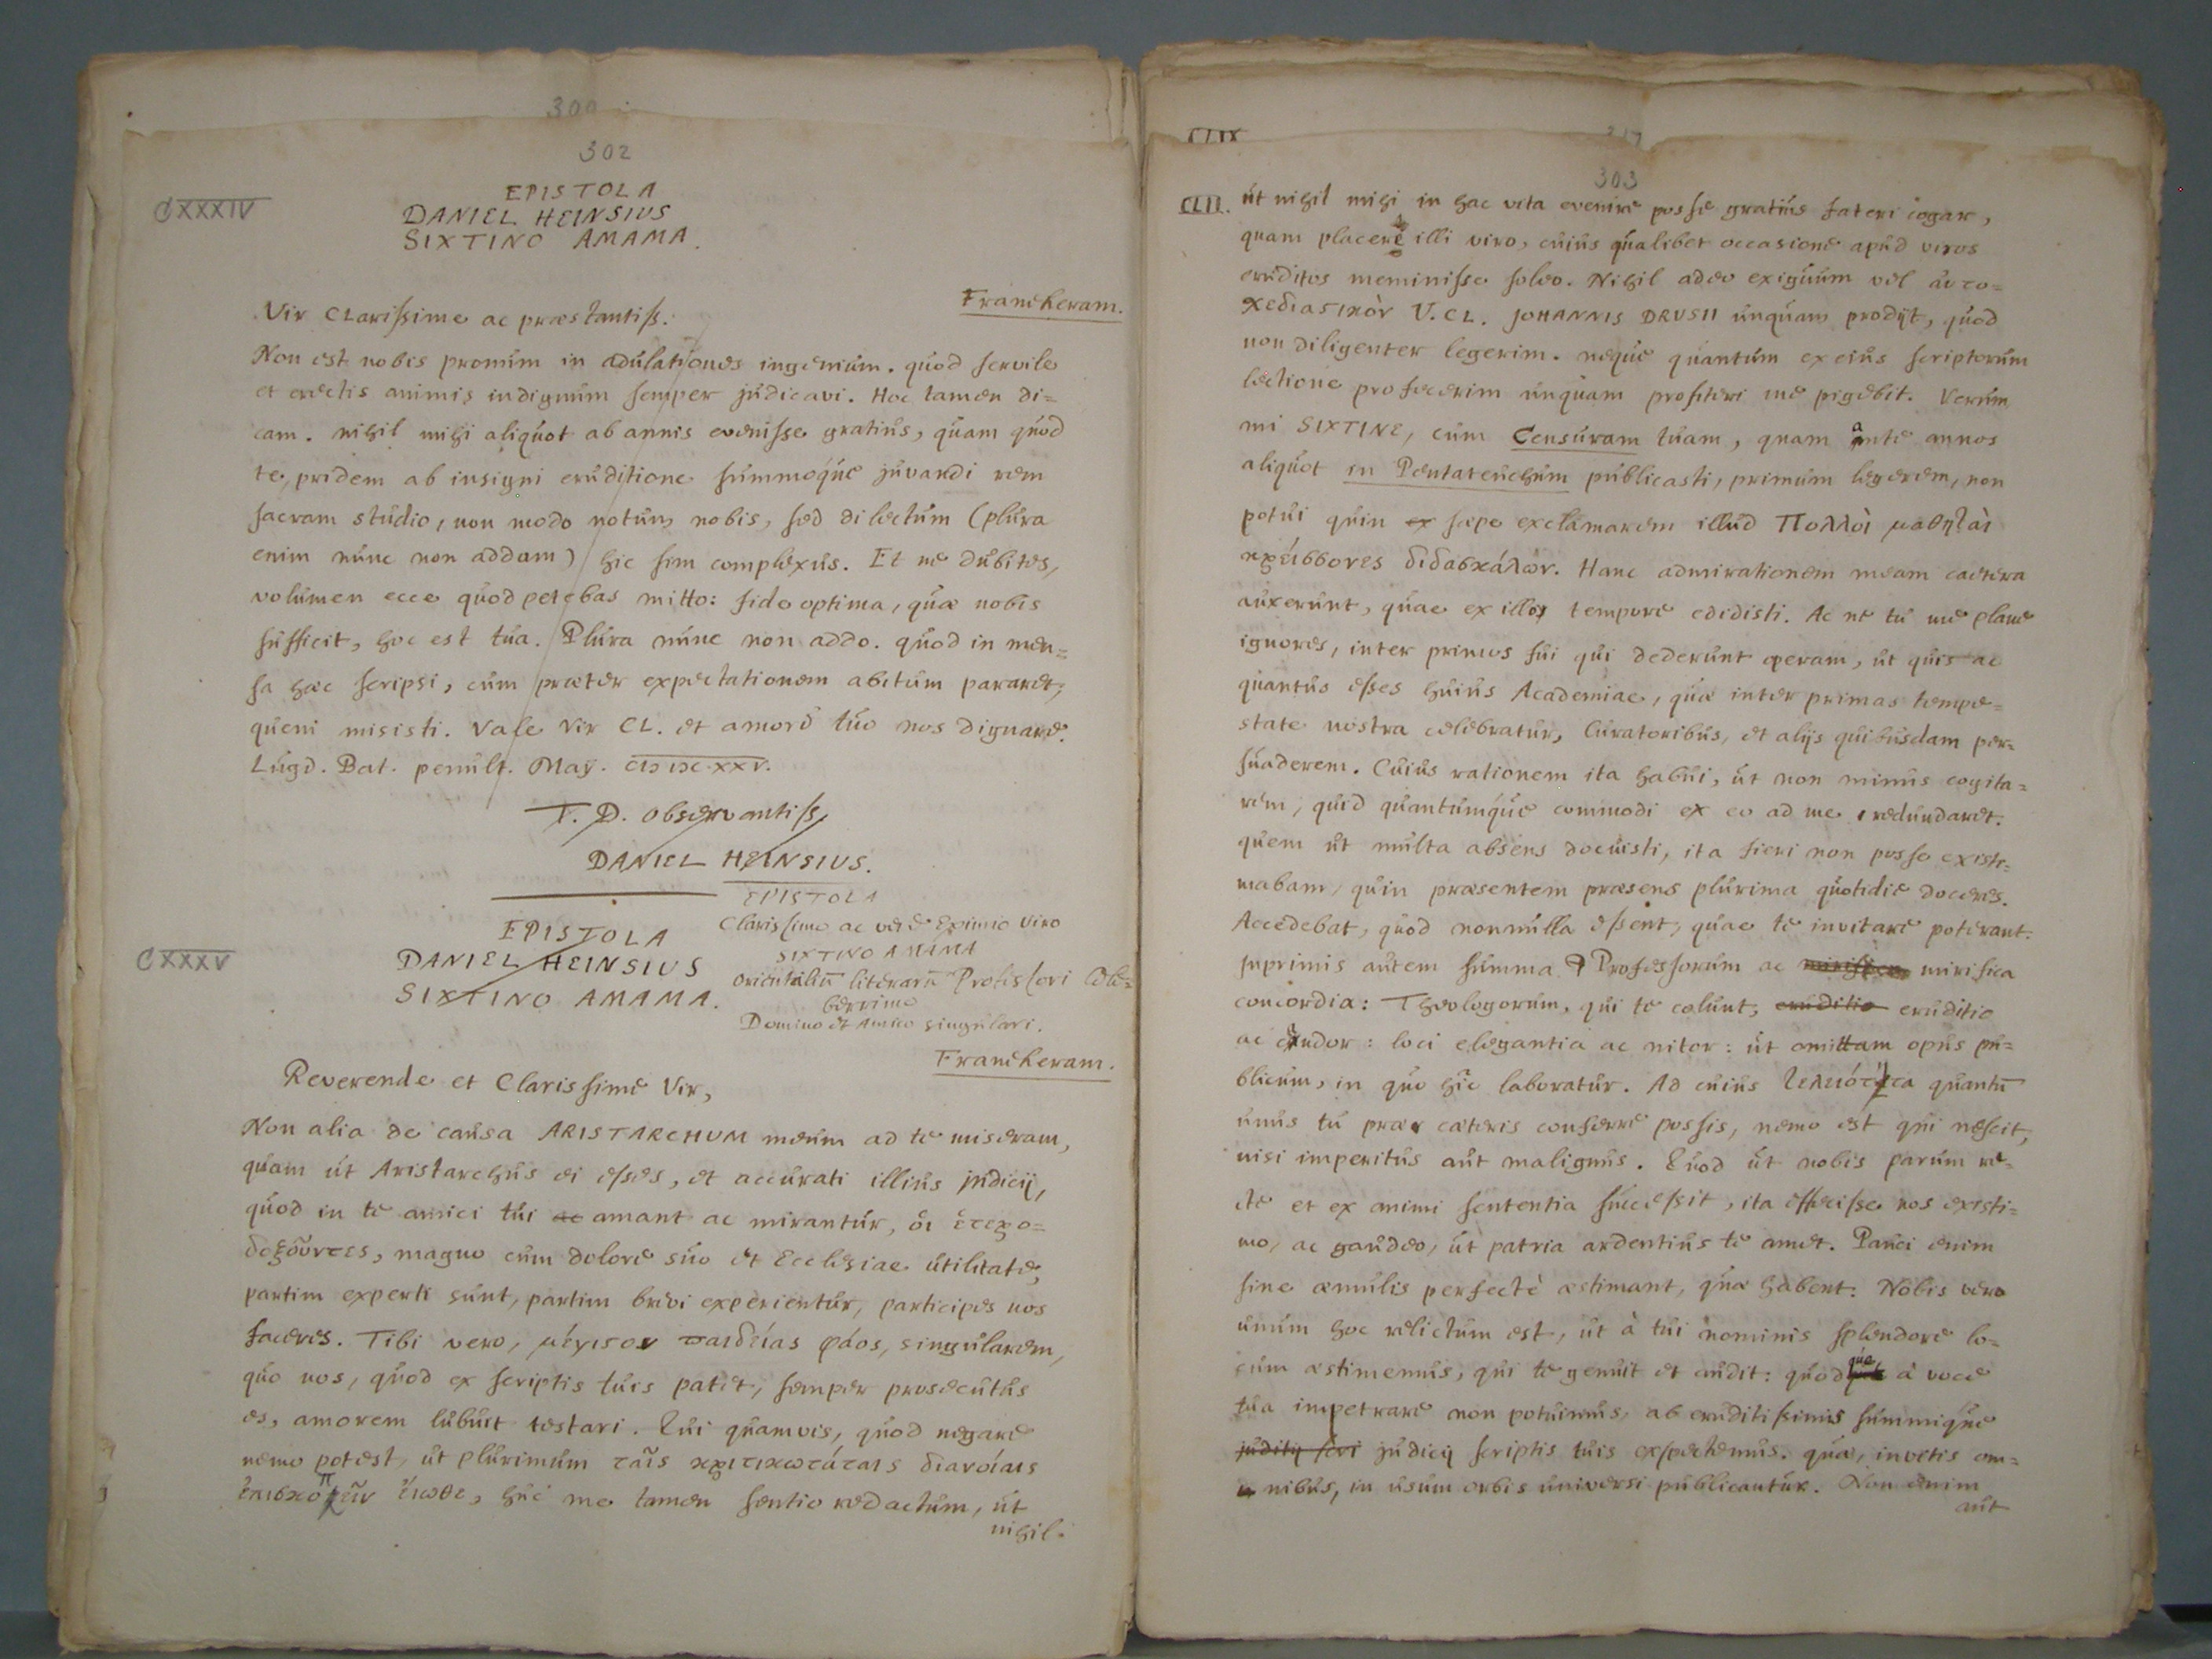 300
302
EPISTOLA
CXXXIV
DANIEL HEINSIUS
SIXTINO AMAMA.
Franekeram.
Vir Clarissime ac præstantiss.
Non est nobis promum in adulationes ingenium. quod servile
et erectis animis indignum semper judicavi. Hoc tamen di=
cam. nihil mihi aliquot ab annis evenisse gratius, quam quod
te, pridem ab insigni eruditione summoque juvandi rem
sacram studio, non modo notum nobis, sed dilectum (plura
enim nunc non addam) hic sim complexus. Et ne dubites,
volumen ecce quod petebas mitto: fide optima, quæ nobis
sufficit, hoc est tua. Plura nunc non addo. quod in men=
sa hæc scripsi, cum præter expectationem abitum pararet,
quem misisti. Vale Vir CL. et amore tuo nos dignare.
Lugd. Bat. penult. Maÿ. CIƆ IƆC XXV.
T. D. observantiss,
DANIEL HEINSIUS.
EPISTOLA
Clarissimo ac vere Eximio Viro
SIXTINO AMAMA
orientaliū literarū Professori Cele=
berrimo
Domino et Amico singulari.
EPISTOLA
CXXXV
DANIEL HEINSIUS
SIXTINO AMAMA.
Franekeram.
Reverende et Clarissime Vir,
Non alia de causa ARISTARCHUM meum ad te miseram,
quam ut Aristarchus ei esses, et accurati illius judicij,
quod in te amici tui ac amant ac mirantur, οἱ ἑτερο=
δοξοῦντες, magno cum dolore suo et Ecclesiae utilitate,
partim experti sunt, partim brevi experientur, participes nos
faceres. Tibi vero, μέγιστον παιδείας φάος, singularem,
quo nos, quod ex scriptis tuis patet, semper prosecutus
es, amorem lubuit testari. Qui quamvis, quod negare
nemo potest, ut plurimum ταῖς κριτικωτάταις διανοίαις
ἐπισκοπεῖν εἴωθε, huc me tamen sentio redactum, ut
nihil
CLIX
303
CLII. ut nihil mihi in hac vita evenire posse gratius fateri cogar,
quam placere illi viro, cuius qualibet occasione apud viros
eruditos meminisse soleo. Nihil adeo exiguum vel αὐτο=
χεδιαστικὸν V. CL. JOHANNIS DRUSII unquam prodijt, quod
non diligenter legerim. neque quantum ex eius scriptorum
lectione profecerim unquam profiteri me pigebit. Verum
mi SIXTINE, cum Censuram tuam, quam ante annos
aliquot in Pentateuchum publicasti, primum legerem, non
potui quin ex sæpe exclamarem illud Πολλοὶ μαθηταὶ
κρείσσονες διδασκάλων. Hanc admirationem meam caetera
auxerunt, quae ex illo tempore edidisti. Ac ne tu me plane
ignores, inter primos fui qui dederunt operam, ut quis ac
quantus esses huius Academiae, quæ inter primas tempe=
state nostra celebratur, Curatoribus, et alijs quibusdam per=
suaderem. Cuius rationem ita habui, ut non minus cogita=
rem, quid quantumque commodi ex eo ad me redundaret.
quem ut multa absens docuisti, ita fieri non posse existi=
mabam, quin præsentem præsens plurima quotidie doceres.
Accedebat, quod nonnulla essent, quae te invitare poterant.
Inprimis autem summa Professorum ac mirifica
concordia: Theologorum, qui te colunt, eruditio eruditio
ac candor: loci elegantia ac nitor: ut omittam opus pu=
blicum, in quo hic laboratur. Ad cuius τελειότητα quantū
unus tu præ cæteris conferre possis, nemo est qui nescit,
nisi imperitus aut malignus. Quod ut nobis parum re=
cte et ex animi sententia successit, ita effecisse nos existi=
mo, ac gaudeo, ut patria ardentius te amet. Pauci enim
sine æmulis perfectè æstimant, quæ habent. Nobis vero
unum hoc relictum est, ut à tui nominis splendore lo=
cum æstimemus, qui te genuit et audit: quod quæ à voce
tua impetrare non potuimus, ab eruditissimis summique
judicij judicij scriptis tuis expectemus. quæ, invitis om=
nibus, in usum orbis universi publicantur. Non enim
aut